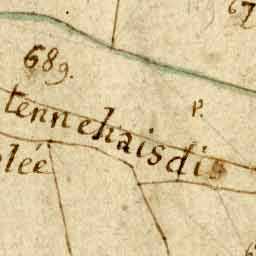 67
689.
P.
tennehaisdis
lée